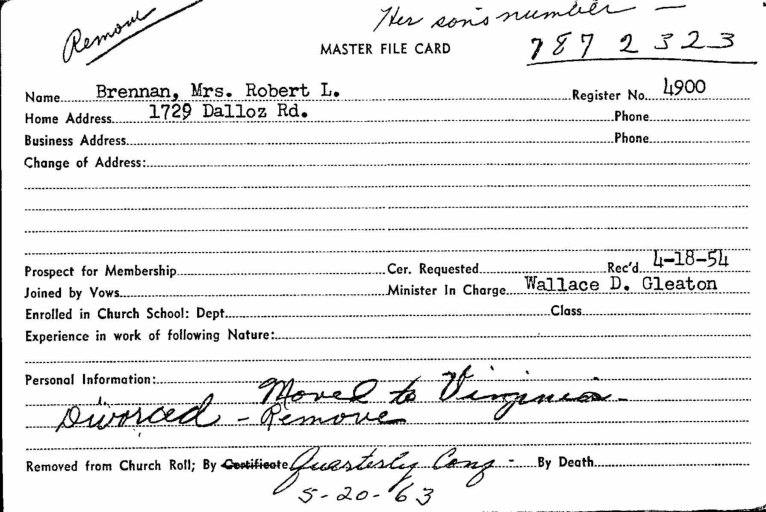 Remove
Her son's number —
MASTER FILE CARD
787 2323
Name Brennan, Mrs. Robert L. Register No. 4900
Home Address 1729 Dalloz Rd. Phone
Business Address Phone
Change of Address:
Prospect for Membership Cer. Requested Rec'd 4-18-54
Joined by Vows Minister In Charge Wallace D. Gleaton
Enrolled in Church School: Dept. Class
Experience in work of following Nature:
Personal Information: Moved to Virginia -
Divorced - Remove
Removed from Church Roll; By Certificate Quarterly Conf - By Death
5-20-63